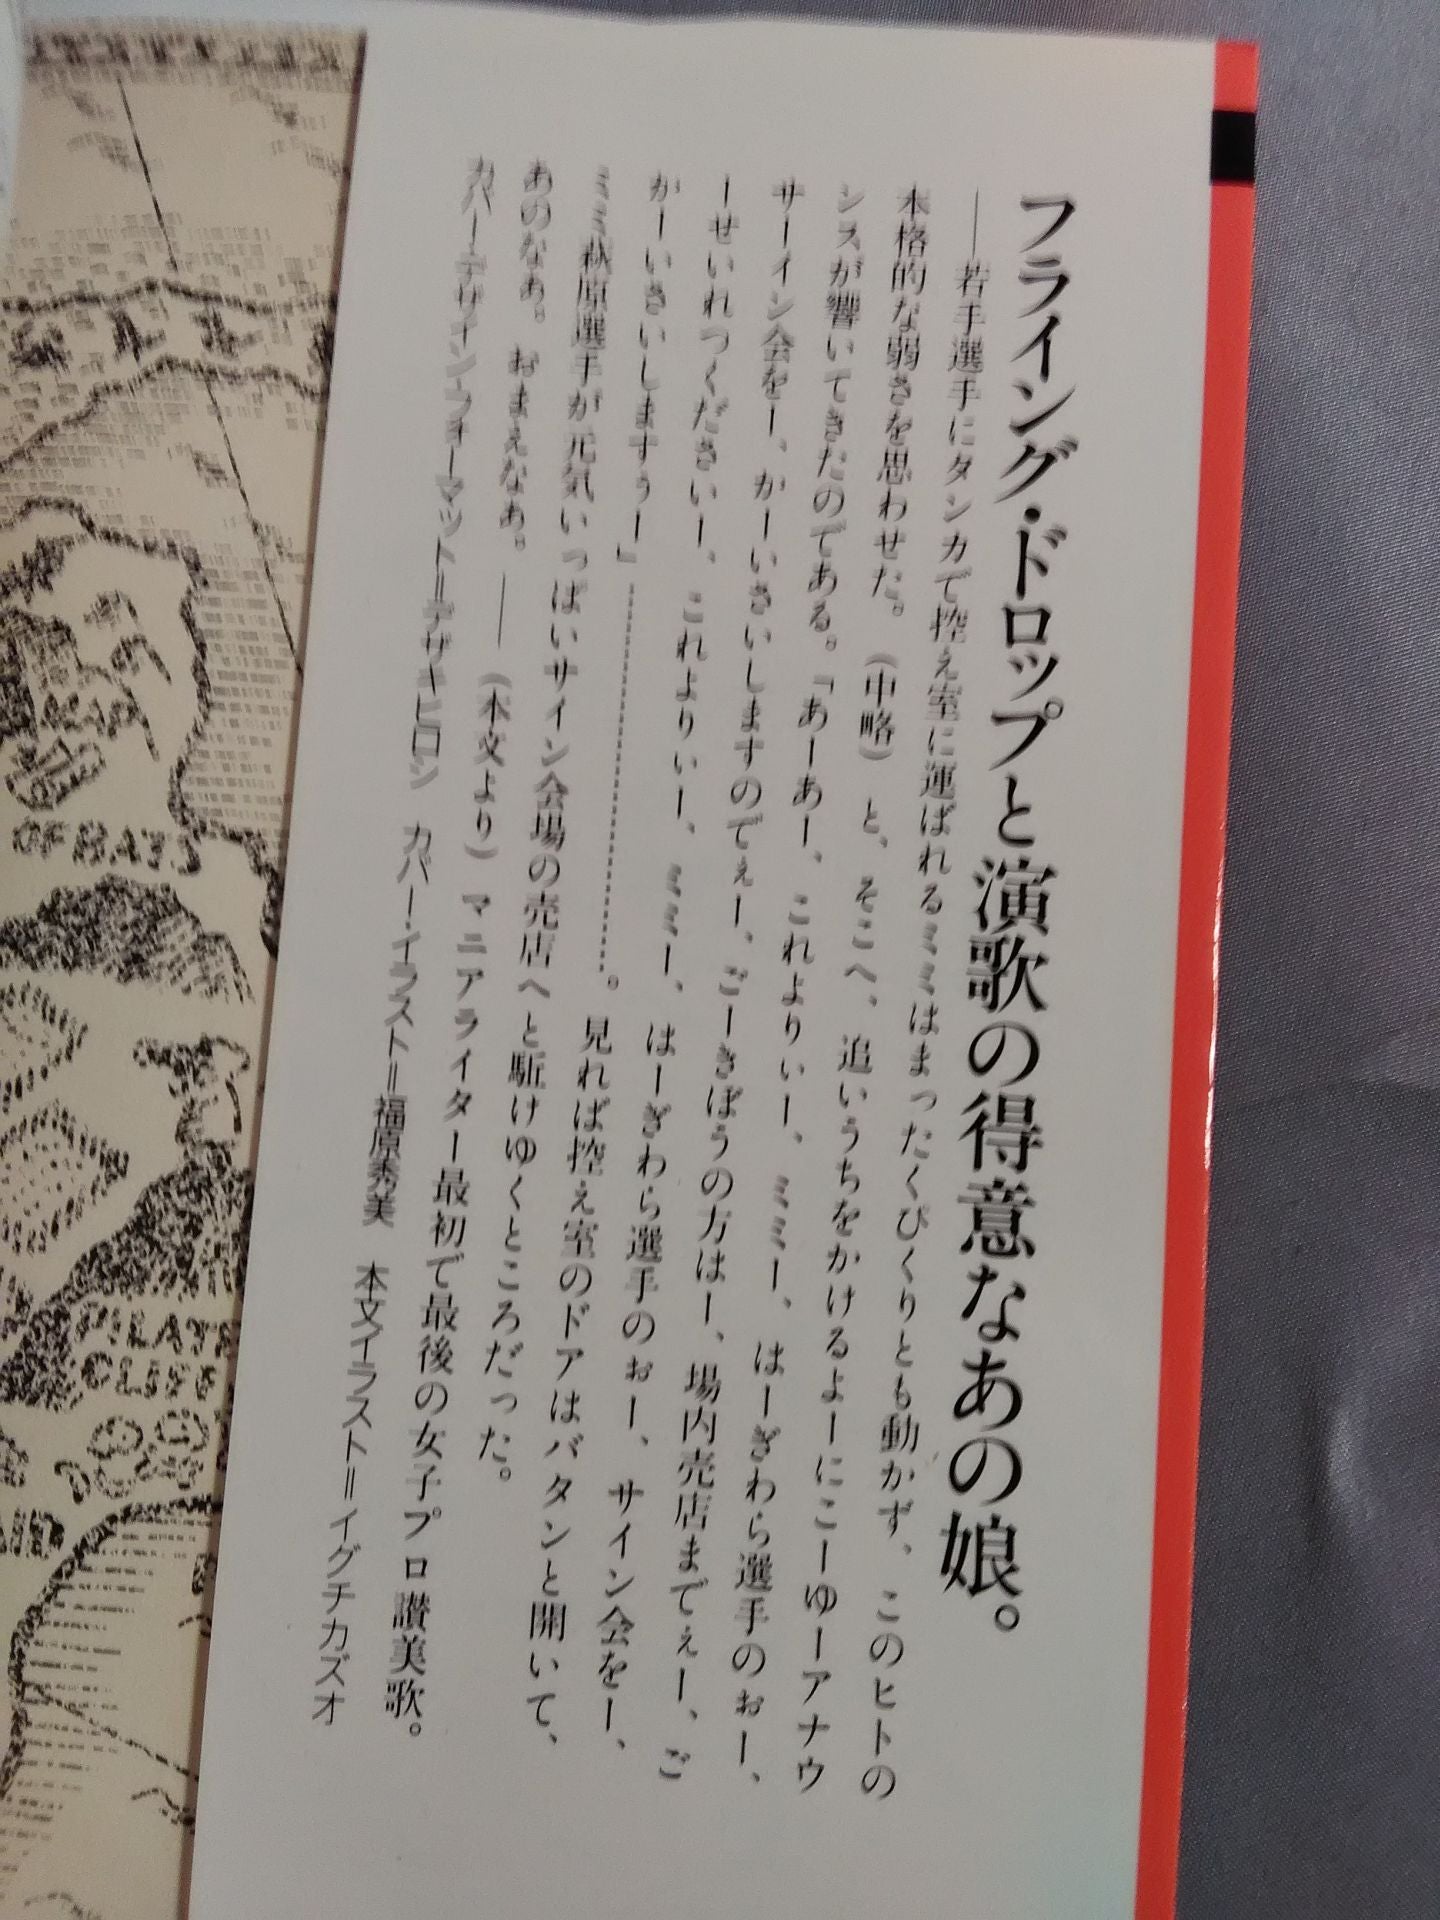 フライング・ドロップと演歌の得意なあの娘。
――若手選手にタンカで控え室に運ばれるミミはまったくぴくりとも動かず、このヒトの
本格的な弱さを思わせた。(中略) と、そこへ、追いうちをかけるよーにこーゆーアナウ
ンスが響いてきたのである。「あーあー、これよりぃー、ミミー、はーぎわら選手のぉー、
サーイン会をー、かーいさいしますのでぇー、ごーきぼうの方はー、場内売店までぇー、ご
ーせいれつくださいー、これよりぃー、ミミー、はーぎわら選手のぉー、サイン会をー、
かーいさいしますぅー」……………………。見れば控え室のドアはバタンと開いて、
ミミ萩原選手が元気いっぱいサイン会場の売店へと駈けゆくところだった。
あのなあ。おまえなあ。――(本文より) マニアライター最初で最後の女子プロ讃美歌。
カバーデザインフォーマット=デザキヒロシ カバー・イラスト=福原秀美 本文イラスト=イグチカズオ
OF RATS
PILATE
CLIFF